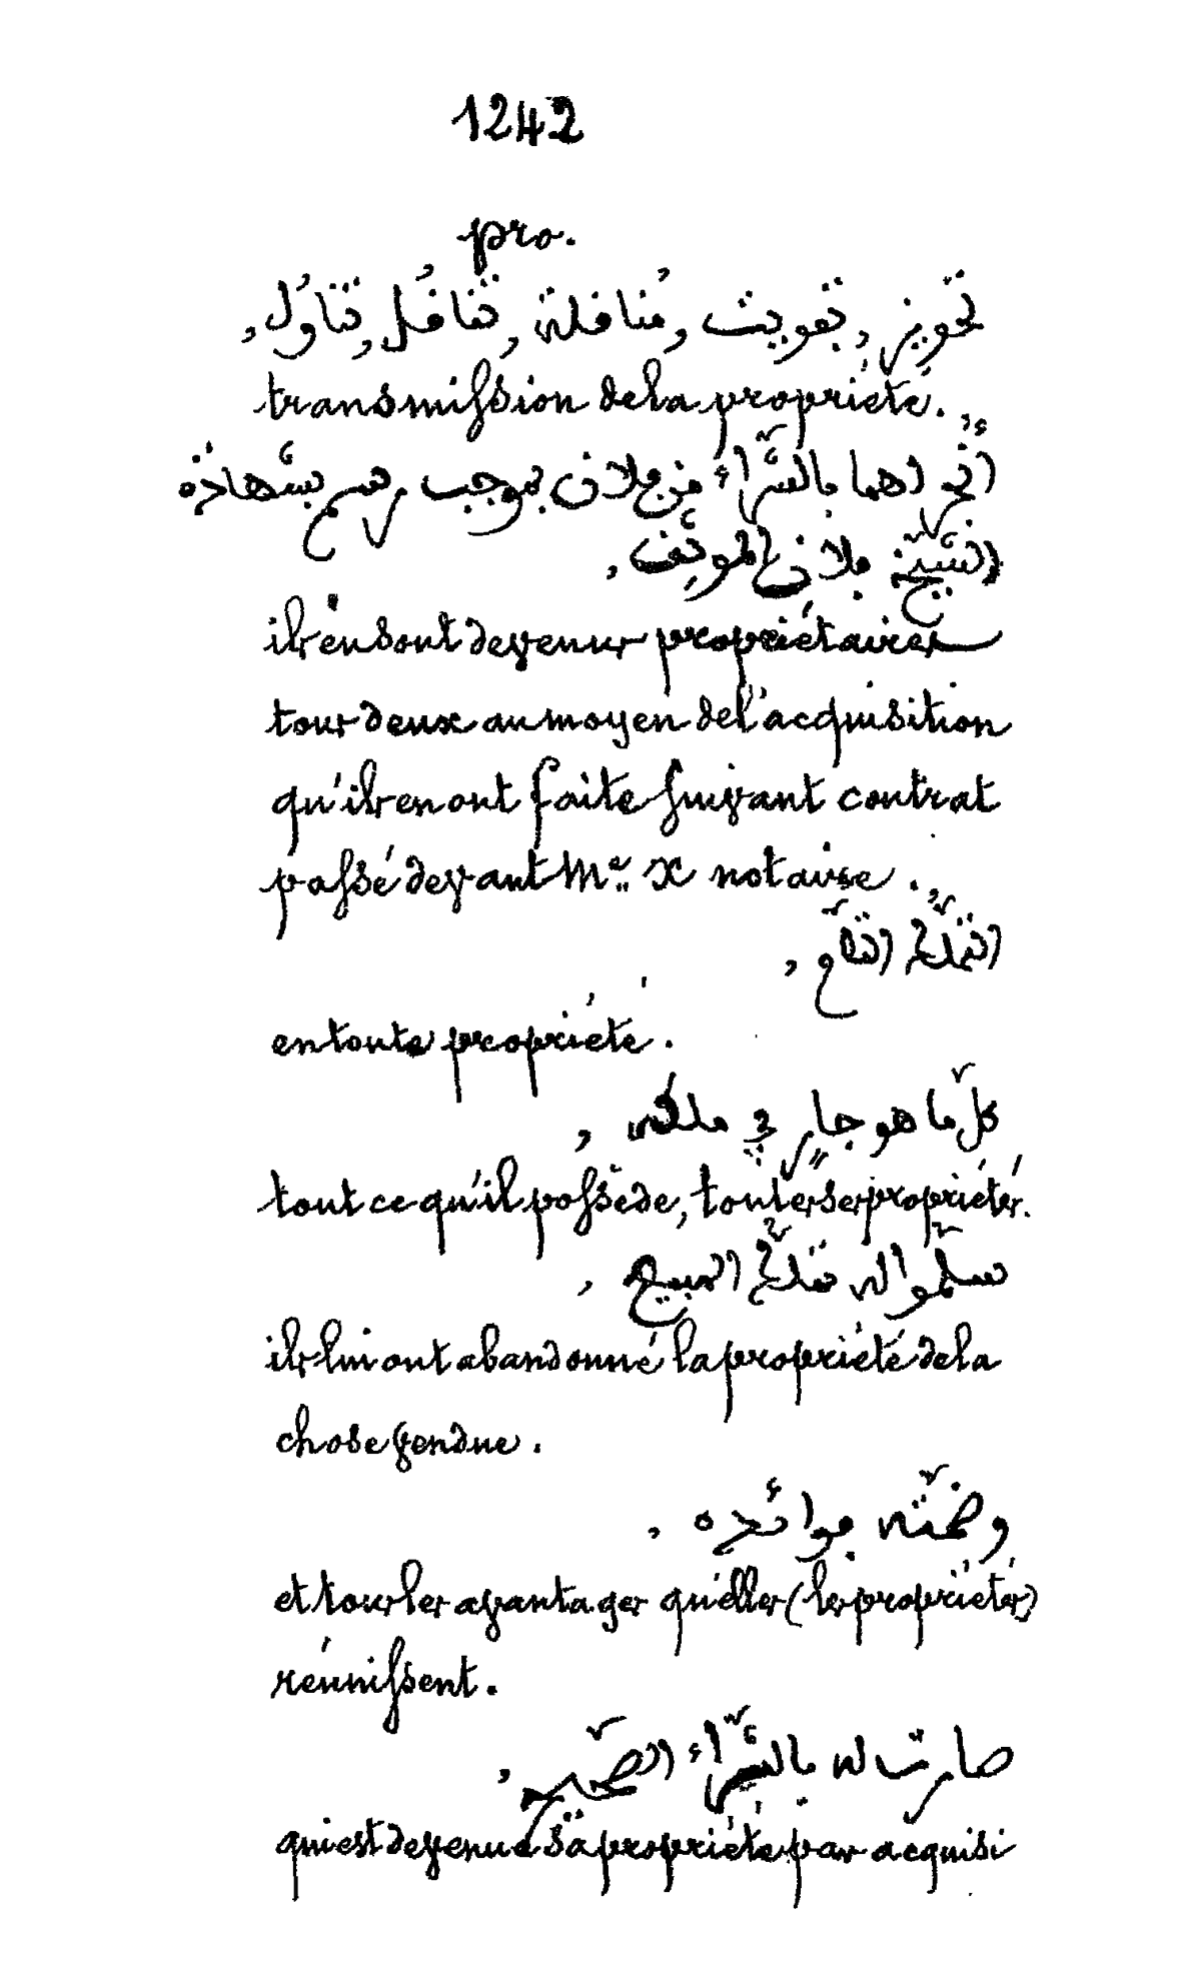 1242
pro.
تحويز, تفويت, مُنافلة, تنافُل, تناوُل,
transmission de la propriété.
أنجر لهما بالشّراء من فلان بموجب رسم بشهادة
الشّيخ فلان الموثّق,
ils en sont devenus propriétaires
tous deux au moyen de l'acquisition
qu'ils en ont faite suivant contrat
passé devant Me X notaire.
التملّك التّامّ,
en toute propriété.
كلّ ما هو جارٍ في ملكه,
tout ce qu'il possède, toutes ses propriétés.
سلّموا له تملّك المبيع,
ils lui ont abandonné la propriété de la
chose vendue.
وضمّته فوائده,
et tous les avantages qu'elles (les propriétés)
réunissent.
صارت له بالشّراء الصّحيح,
qui est devenue sa propriété par acquisi